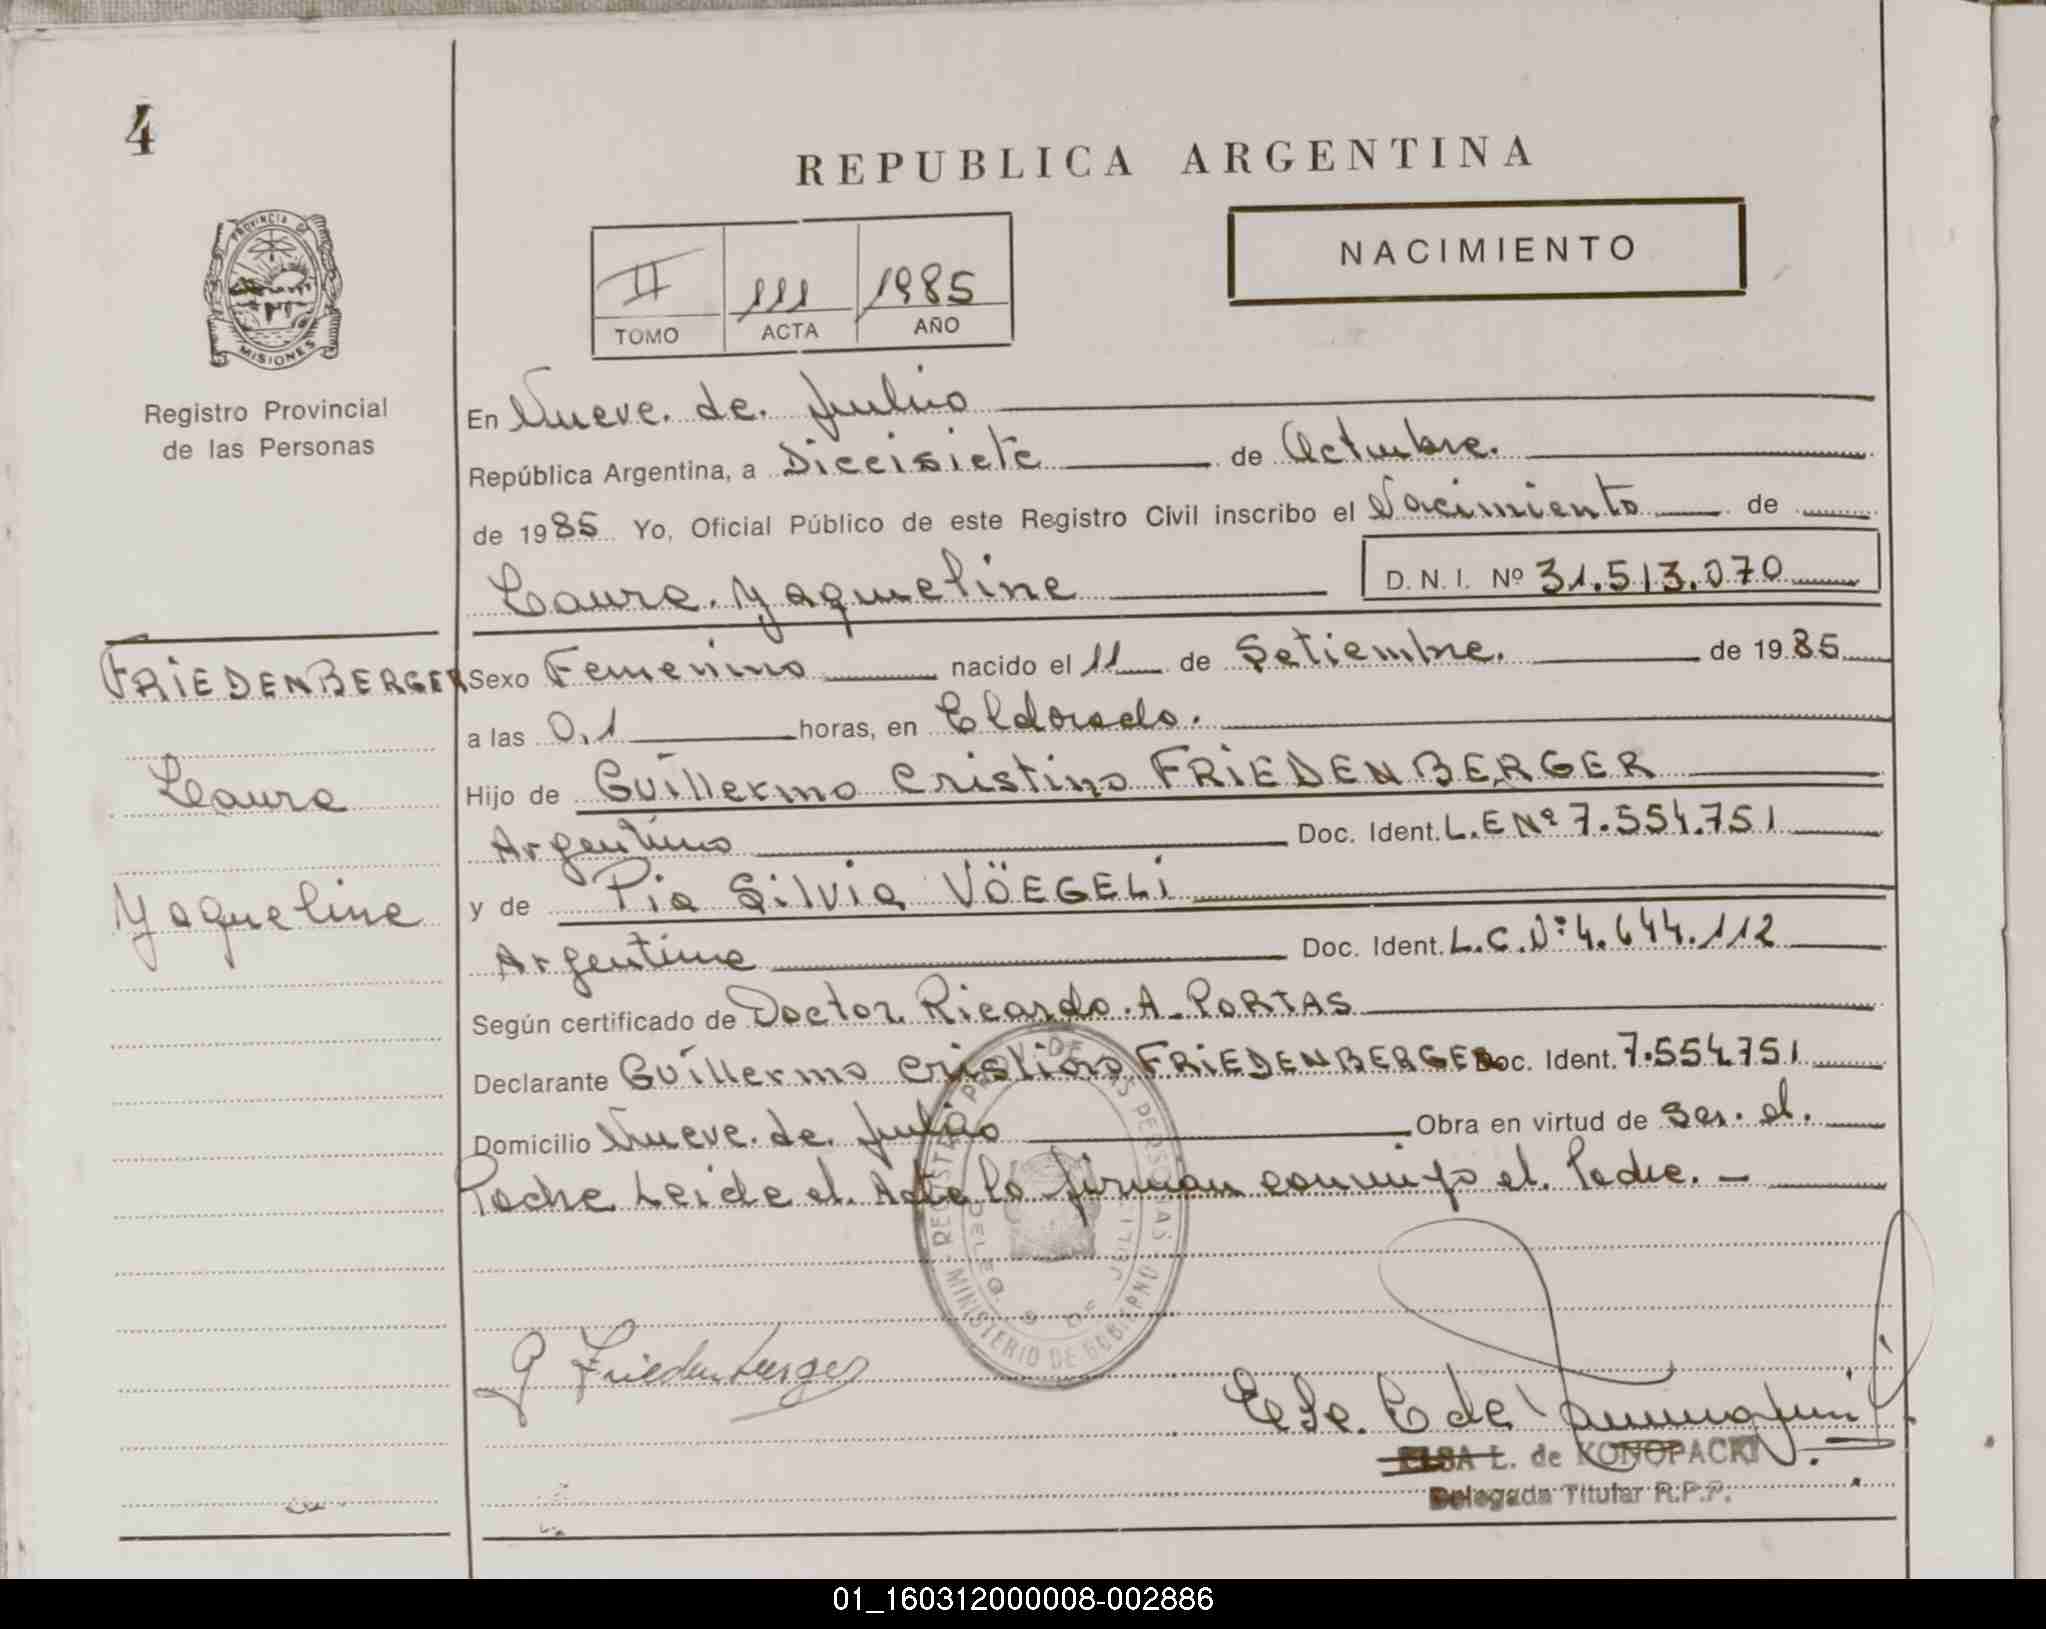 4
REPUBLICA ARGENTINA
PROVINCIA DE
MISIONES
Registro Provincial
de las Personas
II 111 1985
TOMO ACTA AÑO
NACIMIENTO
En Nueve de Julio
República Argentina, a Diecisiete de Octubre.
de 1985 Yo, Oficial Público de este Registro Civil inscribo el Nacimiento de
Laura Yaqueline D. N. I. Nº 31.513.070
FRIEDENBERGER
Laura
Yaqueline
Sexo Femenino nacido el 11 de Setiembre. de 1985
a las 0,1 horas, en Eldorado.
Hijo de Guillermo Cristino FRIEDENBERGER
Argentino Doc. Ident. L.E Nº 7.554.751
y de Pia Silvia VÖEGELI
Argentina Doc. Ident. L.C.Nº 4.644.112
Según certificado de Doctor Ricardo A. PORTAS
Declarante Guillermo Cristino FRIEDENBERGER Doc. Ident. 7.554.751
Domicilio Nueve de Julio Obra en virtud de ser el
Padre Leida el Acta la firman conmigo el Padre. –
REGISTRO PROV. DE LAS PERSONAS
MINISTERIO DE GOBIERNO
DELEG. 9 DE JULIO
G Friedenberger
ELSA L. de KONOPACKI
Delegada Titular R.P.P.
01_160312000008-002886